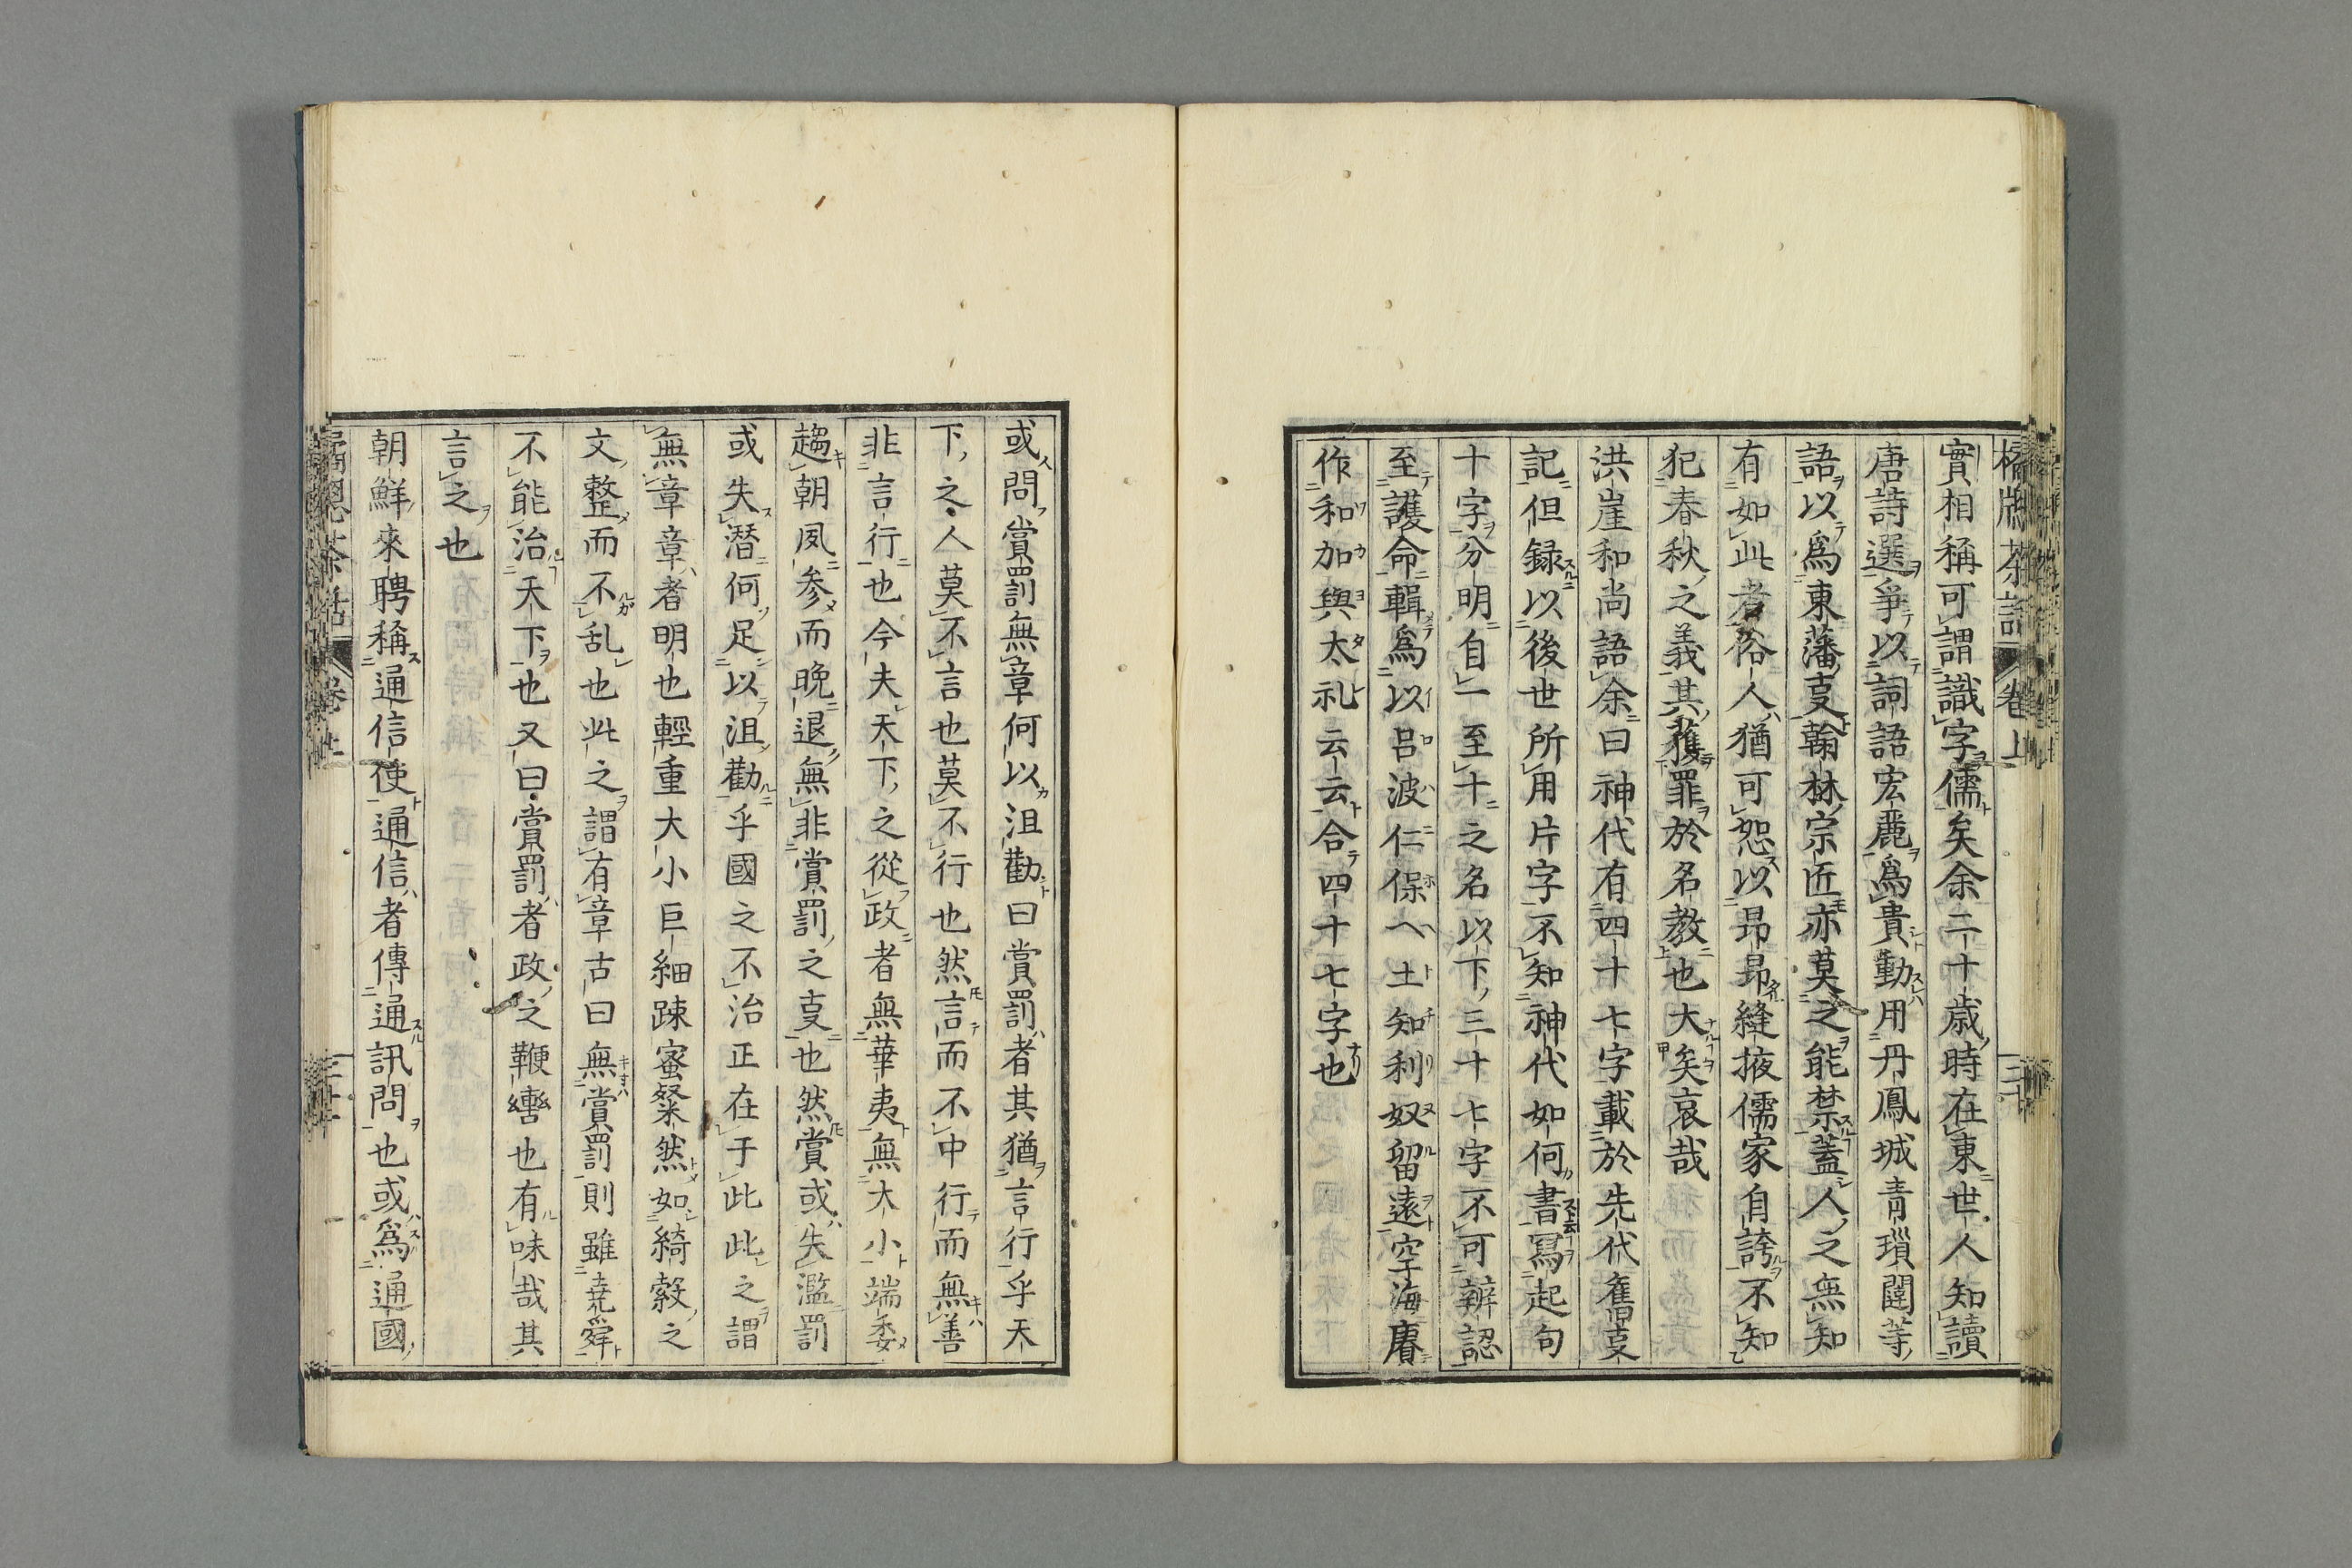 實相稱可謂識字儒矣余二十歳時在東世人知讀
唐詩選爭以詞語宏麗爲貴動用丹鳳城青瑣闥等
語以爲東藩叓翰林宗匠亦莫之能禁蓋人之無知
有如此者俗人猶可恕以昻昻縫掖儒家自誇不知
犯春秋之義其獲罪於名教也大矣哀哉
洪崖和尚語余曰神代有四十七字載於先代舊叓
記但録以後世所用片字不知神代如何書冩起句
十字分明自一至十之名以下三十七字不可辨認
至護命輯爲以呂波仁保へ土知利奴留遠空海賡
作和加與太礼云云合四十七字也
或問賞罰無章何以沮勸曰賞罰者其猶言行乎天
下之人莫不言也莫不行也然言而不中行而無善
非言行也今夫天下之從政者無華夷無大小端委
趨朝夙参而晩退無非賞罰之叓也然賞或失濫罰
或失潜何足以沮勸乎國之不治正在于此此之謂
無章章者明也輕重大小巨細踈蜜粲然如綺縠之
文整而不乱也此之謂有章古曰無賞罰則雖堯舜
不能治天下也又曰賞罰者政之鞭轡也有味哉其
言之也
朝鮮來聘稱通信使通信者傳通訊問也或爲通國